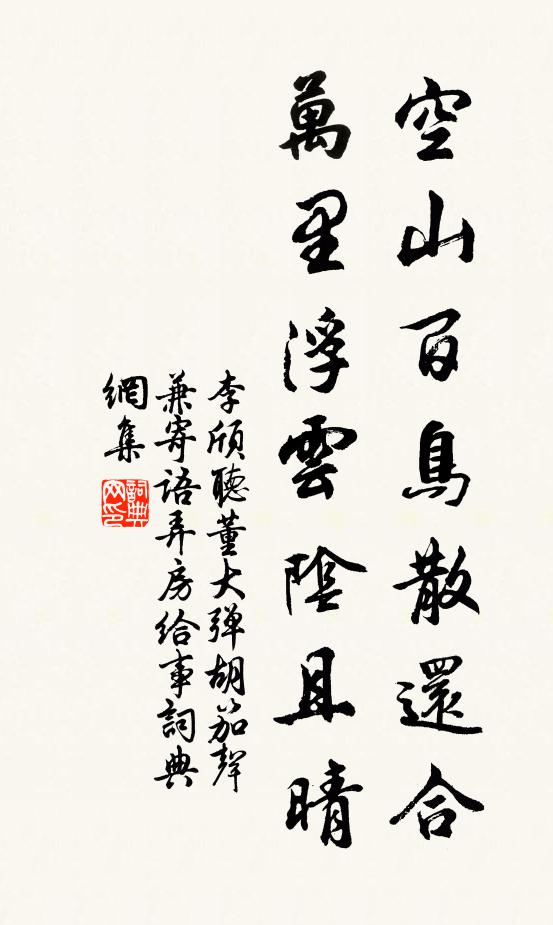 空山百鳥散還合
萬里浮雲陰且晴
李頎聽董大弹胡笳聲
兼寄语弄房给事詞典
網集
詞典
网印